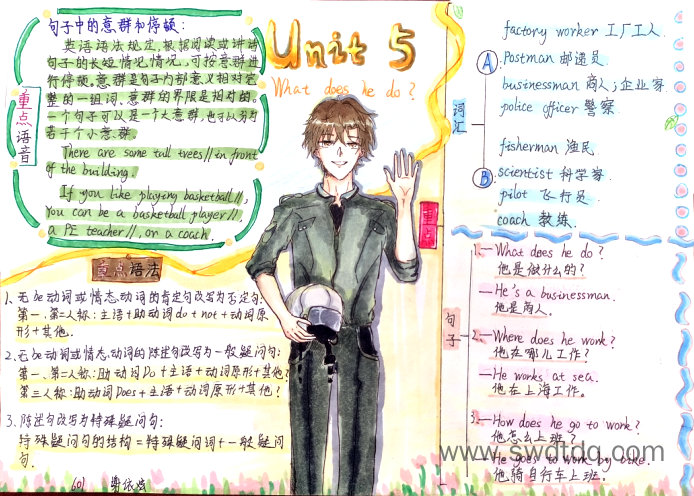 句子中的意群和停顿:
英语语法规定,根据阅读或讲话
句子的长短情况情况,可按意群进
行停顿。意群是句子内部意义相对完
整的一组词、意群的界限是相对的,
一个句子可以是一个大意群,也可以分为
若干个小意群.
There are some tall trees// in front
of the building.
If you like playing basketball//,
You can be a basketball player//,
a PE teacher//, or a coach.
重点语音
Unit 5
What does he do?
factory worker 工厂工人
Postman 邮递员
businessman 商人;企业家
police officer 警察
fisherman 渔民
scientist 科学家
pilot 飞行员
coach 教练
A
B
词汇
重点语法
1、无be动词或情态动词的肯定句改写为不定句:
第一、第二人称:主语+助动词do+not+动词原
形+其他.
2、无be动词或情态动词的陈述句改写为一般疑问句:
第一、第二人称:助动词Do+主语+动词原形+其他?
第三人称:助动词Does+主语+动词原形+其他?
3、陈述句改写为特殊疑问句:
特殊疑问句的结构=特殊疑问词+一般疑问
句.
重点
句子
1、—What does he do?
他是做什么的?
—He's a businessman.
他是商人.
2、—Where does he work?
他在哪儿工作?
—He works at sea.
他在上海工作.
3、—How does he go to work?
他怎么上班?
He goes to work by bike.
他骑自行车上班.
www.swdtdq.com
601